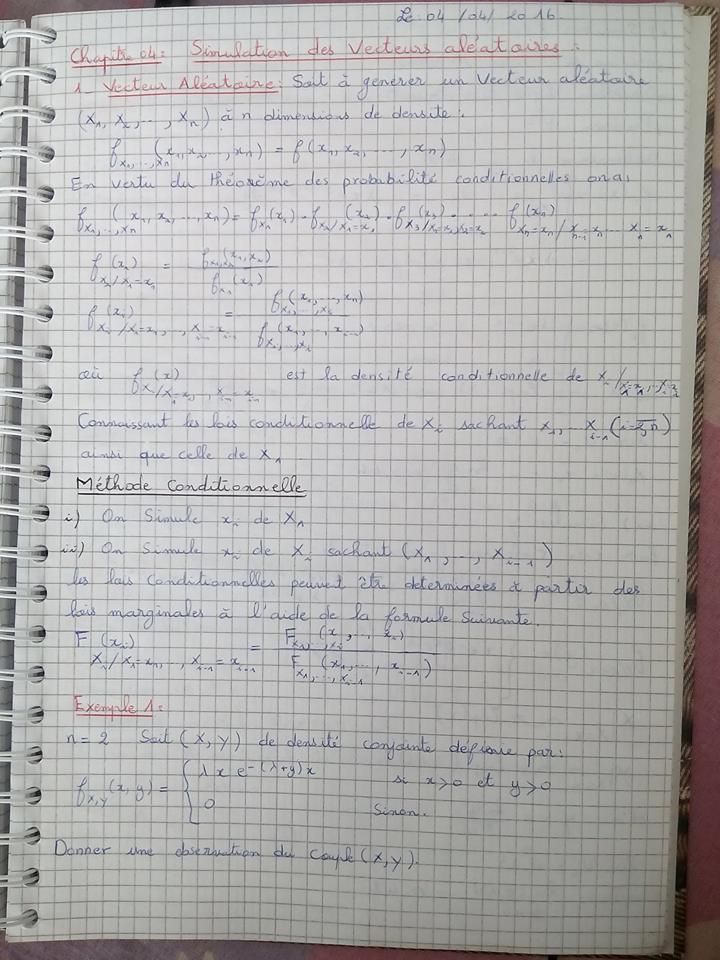 Le 04/04/2016
Chapitre 04: Simulation des Vecteurs aléatoires:
1_ Vecteur Aléatoire: Soit à génerer un Vecteur aléatoire
(X₁, X₂, ..., Xₙ) à n dimensions de densite:
f_{X₁,...,Xₙ}(x₁, x₂, ..., xₙ) = f(x₁, x₂, ..., xₙ)
En vertu du théorème des probabilité conditionnelles on a,
f_{X₁,...,Xₙ}(x₁, x₂, ..., xₙ) = f_{X₁}(x₁) . f_{X₂/X₁=x₁}(x₂) . f_{X₃/X₁=x₁,X₂=x₂}(x₃) ..... f(xₙ)
f_{X₂/X₁=x₁}(x₂) = f_{X₁,X₂}(x₁,x₂) / f_{X₁}(x₁)
f_{Xᵢ/X₁=x₁,...,Xᵢ₋₁=xᵢ₋₁}(xᵢ) = f_{X₁,...,Xᵢ}(x₁, ..., xₙ) / f(x₁, ..., xᵢ₋₁)
où f_{Xᵢ/X₁=x₁,...,Xᵢ₋₁=xᵢ₋₁}(x) est la densité conditionnelle de Xᵢ/X₁=x₁,...
Connaissant les lois conditionnelle de Xᵢ sachant X₁,... Xᵢ₋₁ (i=2,n)
ainsi que celle de X₁
Méthode Conditionnelle
i) On Simule xᵢ de X₁
ii) On Simule xᵢ de Xᵢ sachant (X₁, ..., Xᵢ₋₁)
les lois Conditionnelles peuvent être determinées à partir des
lois marginales à l'aide de la formule Suivante.
F_{Xᵢ/X₁=x₁,...,Xᵢ₋₁=xᵢ₋₁}(xᵢ) = F_{X₁,...,Xᵢ}(x₁, ..., xᵢ) / F_{X₁,...,Xᵢ₋₁}(x₁, ..., xᵢ₋₁)
Exemple 1:
n = 2 Soit (X, Y) de densité conjointe définie par:
f_{X,Y}(x, y) = { λ x e^{-(λ+y)x} si x>0 et y>0
0 Sinon.
Donner une observation du Couple (X, Y).